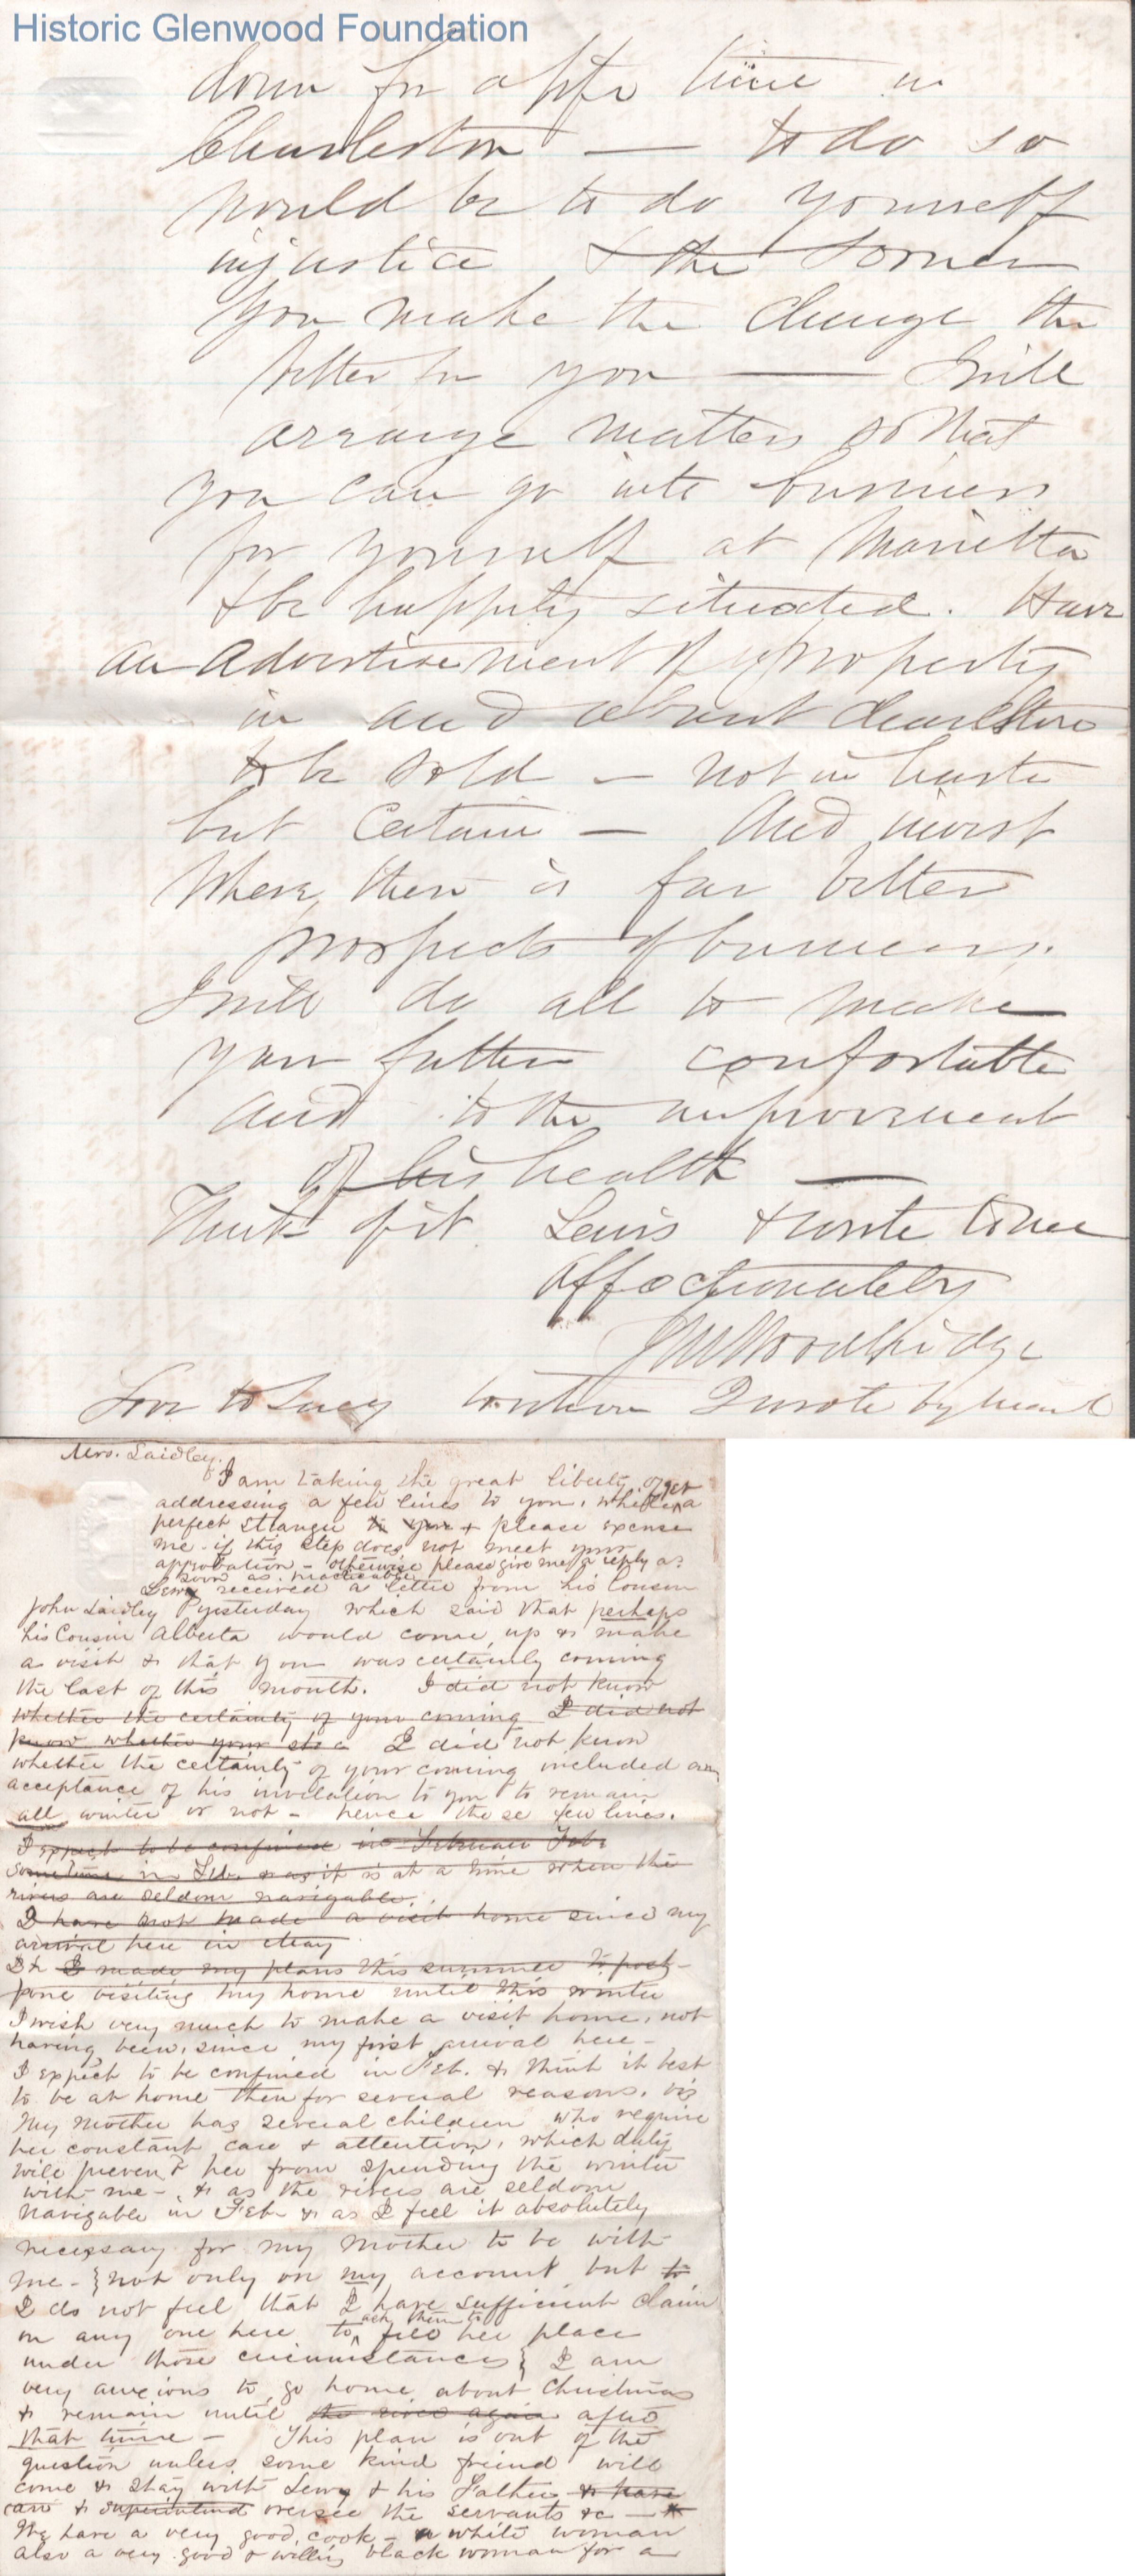 Historic Glenwood Foundation
down for a life time in
Charleston — to do so
would be to do yourself
injustice & the sooner
you make the change the
better for you — I will
arrange matters so that
you can go into business
for yourself at Marietta
& be happily situated. Have
an advertisement of property
in and about Charleston
to be sold — not in haste
but certain — and invest
where there is far better
prospects of business.
I will do all to make
your father comfortable
and to the improvement
of his health —
Think of it Lewis & write to me
Affectionately
J M Woodbridge
Love to Lucy to whom I wrote by mail
Mrs. Laidley.
I am taking the great liberty, of
addressing a few lines to you, while yet a
perfect stranger to you & please excuse
me if this step does not meet your
approbation, – otherwise please give me a reply as
soon as practicable.
Lewy received a letter from his Cousin
John Laidley yesterday which said that perhaps
his Cousin Alberta would come up & make
a visit & that you was certainly coming
the last of this month. I did not know
whether the certainty of your coming I did not
know whether your I did not know
whether the certainty of your coming included an
acceptance of his invitation to you to remain
all winter or not – hence these few lines.
I expect to be confined in February Feb.
sometime in Feb. & as it is at a time when the
rivers are seldom navigable.
I have not made a visit home since my
arrival here in May
I made my plans this summer to post-
pone visiting my home until this winter
I wish very much to make a visit home, not
having been, since my first arrival here –
I expect to be confined in Feb. & think it best
to be at home then for several reasons. viz
My mother has several children who require
her constant care & attention, which duty
will prevent her from spending the winter
with me – & as the rivers are seldom
navigable in Feb. & as I feel it absolutely
necessary for my mother to be with
me – {not only on my account but to
I do not feel that I have sufficient claim
on any one here to ask them to fill her place
under those circumstances} I am
very anxious to go home about Christmas
& remain until the river again after
that time – This plan is out of the
question unless some kind friend will
come & stay with Lewy & his Father & have
care & superintend oversee the servants &c –
We have a very good cook – a white woman
also a very good & willing black woman for a